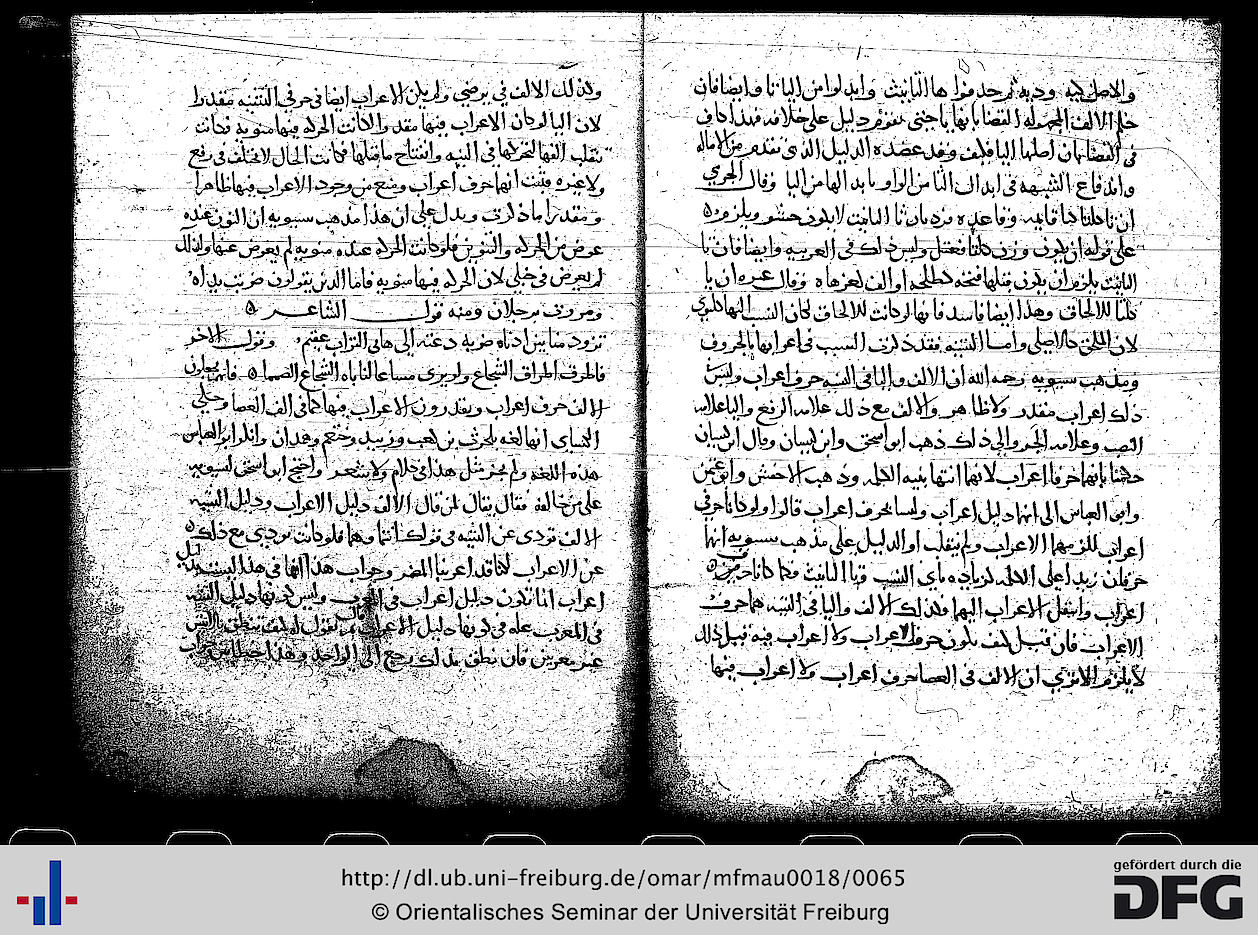 والاصل كيه وديه ثم حذفوا ها التانيث وابدلوا من اليا تا وايضا فان
حكم الالف المجهولة القضا بانها يا حتى يقوم دليل على خلافه فهذا كاف
فى القضا بان اصلها اليا فكيف وقد عضده الدليل الذى تقدم من الاماله
واندفاع الشبهه فى ابدال التا من الواو بابدالها من اليا وقال الجرمي
ان تا كلتا زايده وقاعدته مردوده فان تا التانيث لا يكون حشو ويلزم
على قوله ان يكون وزن كلتا فعتل وليس ذلك فى العربيه وايضا فان تا
التانيث يلزم ان يكون قبلها فتحه كطلحه او الف كعزهاه وقال غيره ان تا
كلتا للالحاق وهذا ايضا فاسد فانها لو كانت للالحاق لكان النسب اليها كلتوي
لان الملحق كالاصلي واما التثنيه فقد ذكرت السبب فى اعرابها بالحروف
ومذهب سيبويه رحمه الله ان الالف واليا فى التثنيه حرف اعراب وليس
ذلك اعراب مقدر ولا ظاهر والالف مع ذلك علامه الرفع واليا علامه
النصب وعلامه الجر والى ذلك ذهب ابو اسحق وابن كيسان وقال ابن كيسان
حكمنا بانهما حرفا اعراب لانهما انتها بنيه الكلمه وذهب الاخفش وابو عثمن
وابو العباس الى انهما دليل اعراب وليسا بحرف اعراب قالوا ولو كانا حرفي
اعراب للزمهما الاعراب ولم ينقلب او الدليل على مذهب سيبويه انهما
حرفان زيدا على الكلمه لزياده ياي النسب وتا التانيث فكما كانا حرفى
اعراب وانتقل الاعراب اليهما فكذلك الالف واليا فى التثنيه هما حرف
الاعراب فان قيل كيف يكون حرف الاعراب ولا اعراب فيه قيل ذلك
لا يلزم الا ترى ان الالف فى العصا حرف اعراب ولا اعراب فيها
وكذلك الالف فى يرضى ولم يكن الاعراب ايضا فى حرفي التثنيه مقدرا
لان اليا لو كان الاعراب فيها مقدر لكانت الحركه فيها منويه فكانت
تنقلب الفا لتحركها فى النيه وانفتاح ما قبلها فكانت الحال لا تختلف فى رفع
ولا غيره فثبت انها حرف اعراب ومنع من وجود الاعراب فيها ظاهرا
ومقدرا ما ذكرت ويدل على ان هذا مذهب سيبويه ان النون عنده
عوض من الحركه والتنوين فلو كانت الحركه عنده منويه لم يعوض عنها وكذلك
لم يعوض فى حبلى لان الحركه فيها منويه فاما الذين يقولون ضربت يداه
ومررت برجلان ومنه قول الشاعر
تزود منا بين اذناه ضربه دعته الى هابي التراب عقيم وقول الاخر
فاطرق اطراق الشجاع ولو يرى مساغا لناباه الشجاع لصمما فانهم يجعلون
الالف حرف اعراب ويقدرون الاعراب فيها كما فى الف العصا وحكى
الكساي انها لغه بلحرث بن كعب وزبيد وخثعم وهمدان وانكر ابو العباس
هذه اللغه ولم يجز مثل هذا فى كلام ولا شعر واحتج ابو اسحق لسيبويه
على من خالفه فقال يقال لمن قال الالف دليل الاعراب ودليل التثنيه
الالف تودى عن التثنيه فى قولك انتما وهما فلو كانت تودي مع ذلك
عن الاعراب لكنا قد اعربنا المضمر وجواب هذا انها فى هذا ليست دليل
اعراب انما تكون دليل اعراب فى المعرب وليس كونها دليل التثنيه
فى المعرب عله فى كونها دليل الاعراب
غير معربين فان نطق بذلك رجع الى الواحد وهذا خطا من قولك
http://dl.ub.uni-freiburg.de/omar/mfmau0018/0065
© Orientalisches Seminar der Universität Freiburg
gefördert durch die
DFG